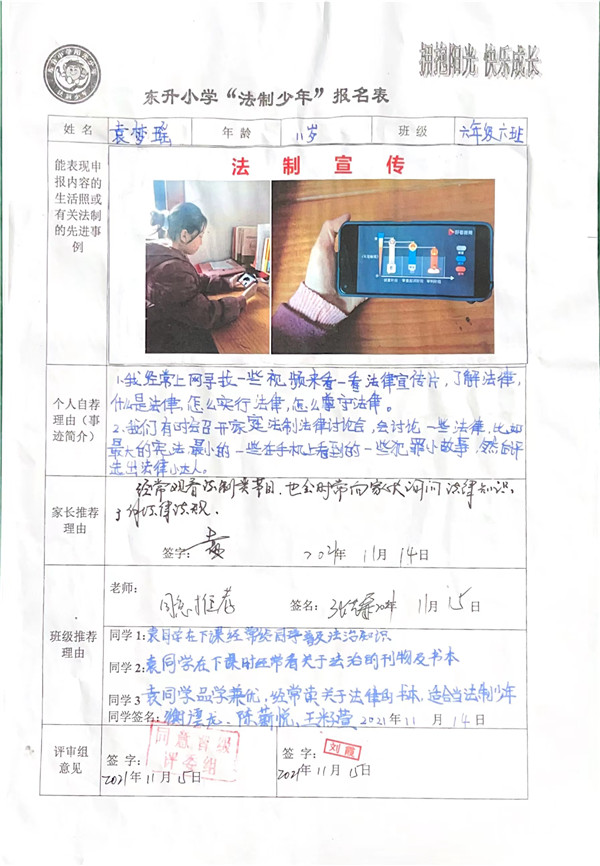 拥抱阳光 快乐成长
东升小学“法制少年”报名表
姓 名 袁梦瑶 年 龄 11岁 班 级 六年级六班
能表现申
报内容的
生活照或
有关法制
的先进事
例
法 制 宣 传
个人自荐
理由（事
迹简介）
1.我经常上网寻找一些视频来看一看法律宣传片，了解法律，
什么是法律，怎么实行法律，怎么遵守法律。
2.我们有时会召开家庭法制法律讨论会，会讨论一些法律，比如
最大的宪法 最小的一些在手机上看到的一些犯罪小故事，然后评
选出法律小达人。
家长推荐
理由
经常观看法制类节目，也会时常向家长询问法律知识，
签字： 袁 2021年 11月 14日
班级推荐
理由
老师：
同意推荐 签名： 11月 15日
同学 1: 袁同学在下课经常给同学普及法治知识
同学 2: 袁同学在下课时经常看关于法治的刊物及书本
同学 3 袁同学品学兼优，经常读关于法律的书本，适合当法制少年
同学签名： 2021年 11 月 14日
评审组
意见
签 字： 同意晋级
评委组
2021年 11月 15日
签 字： 刘霞
2021年 11月 15日